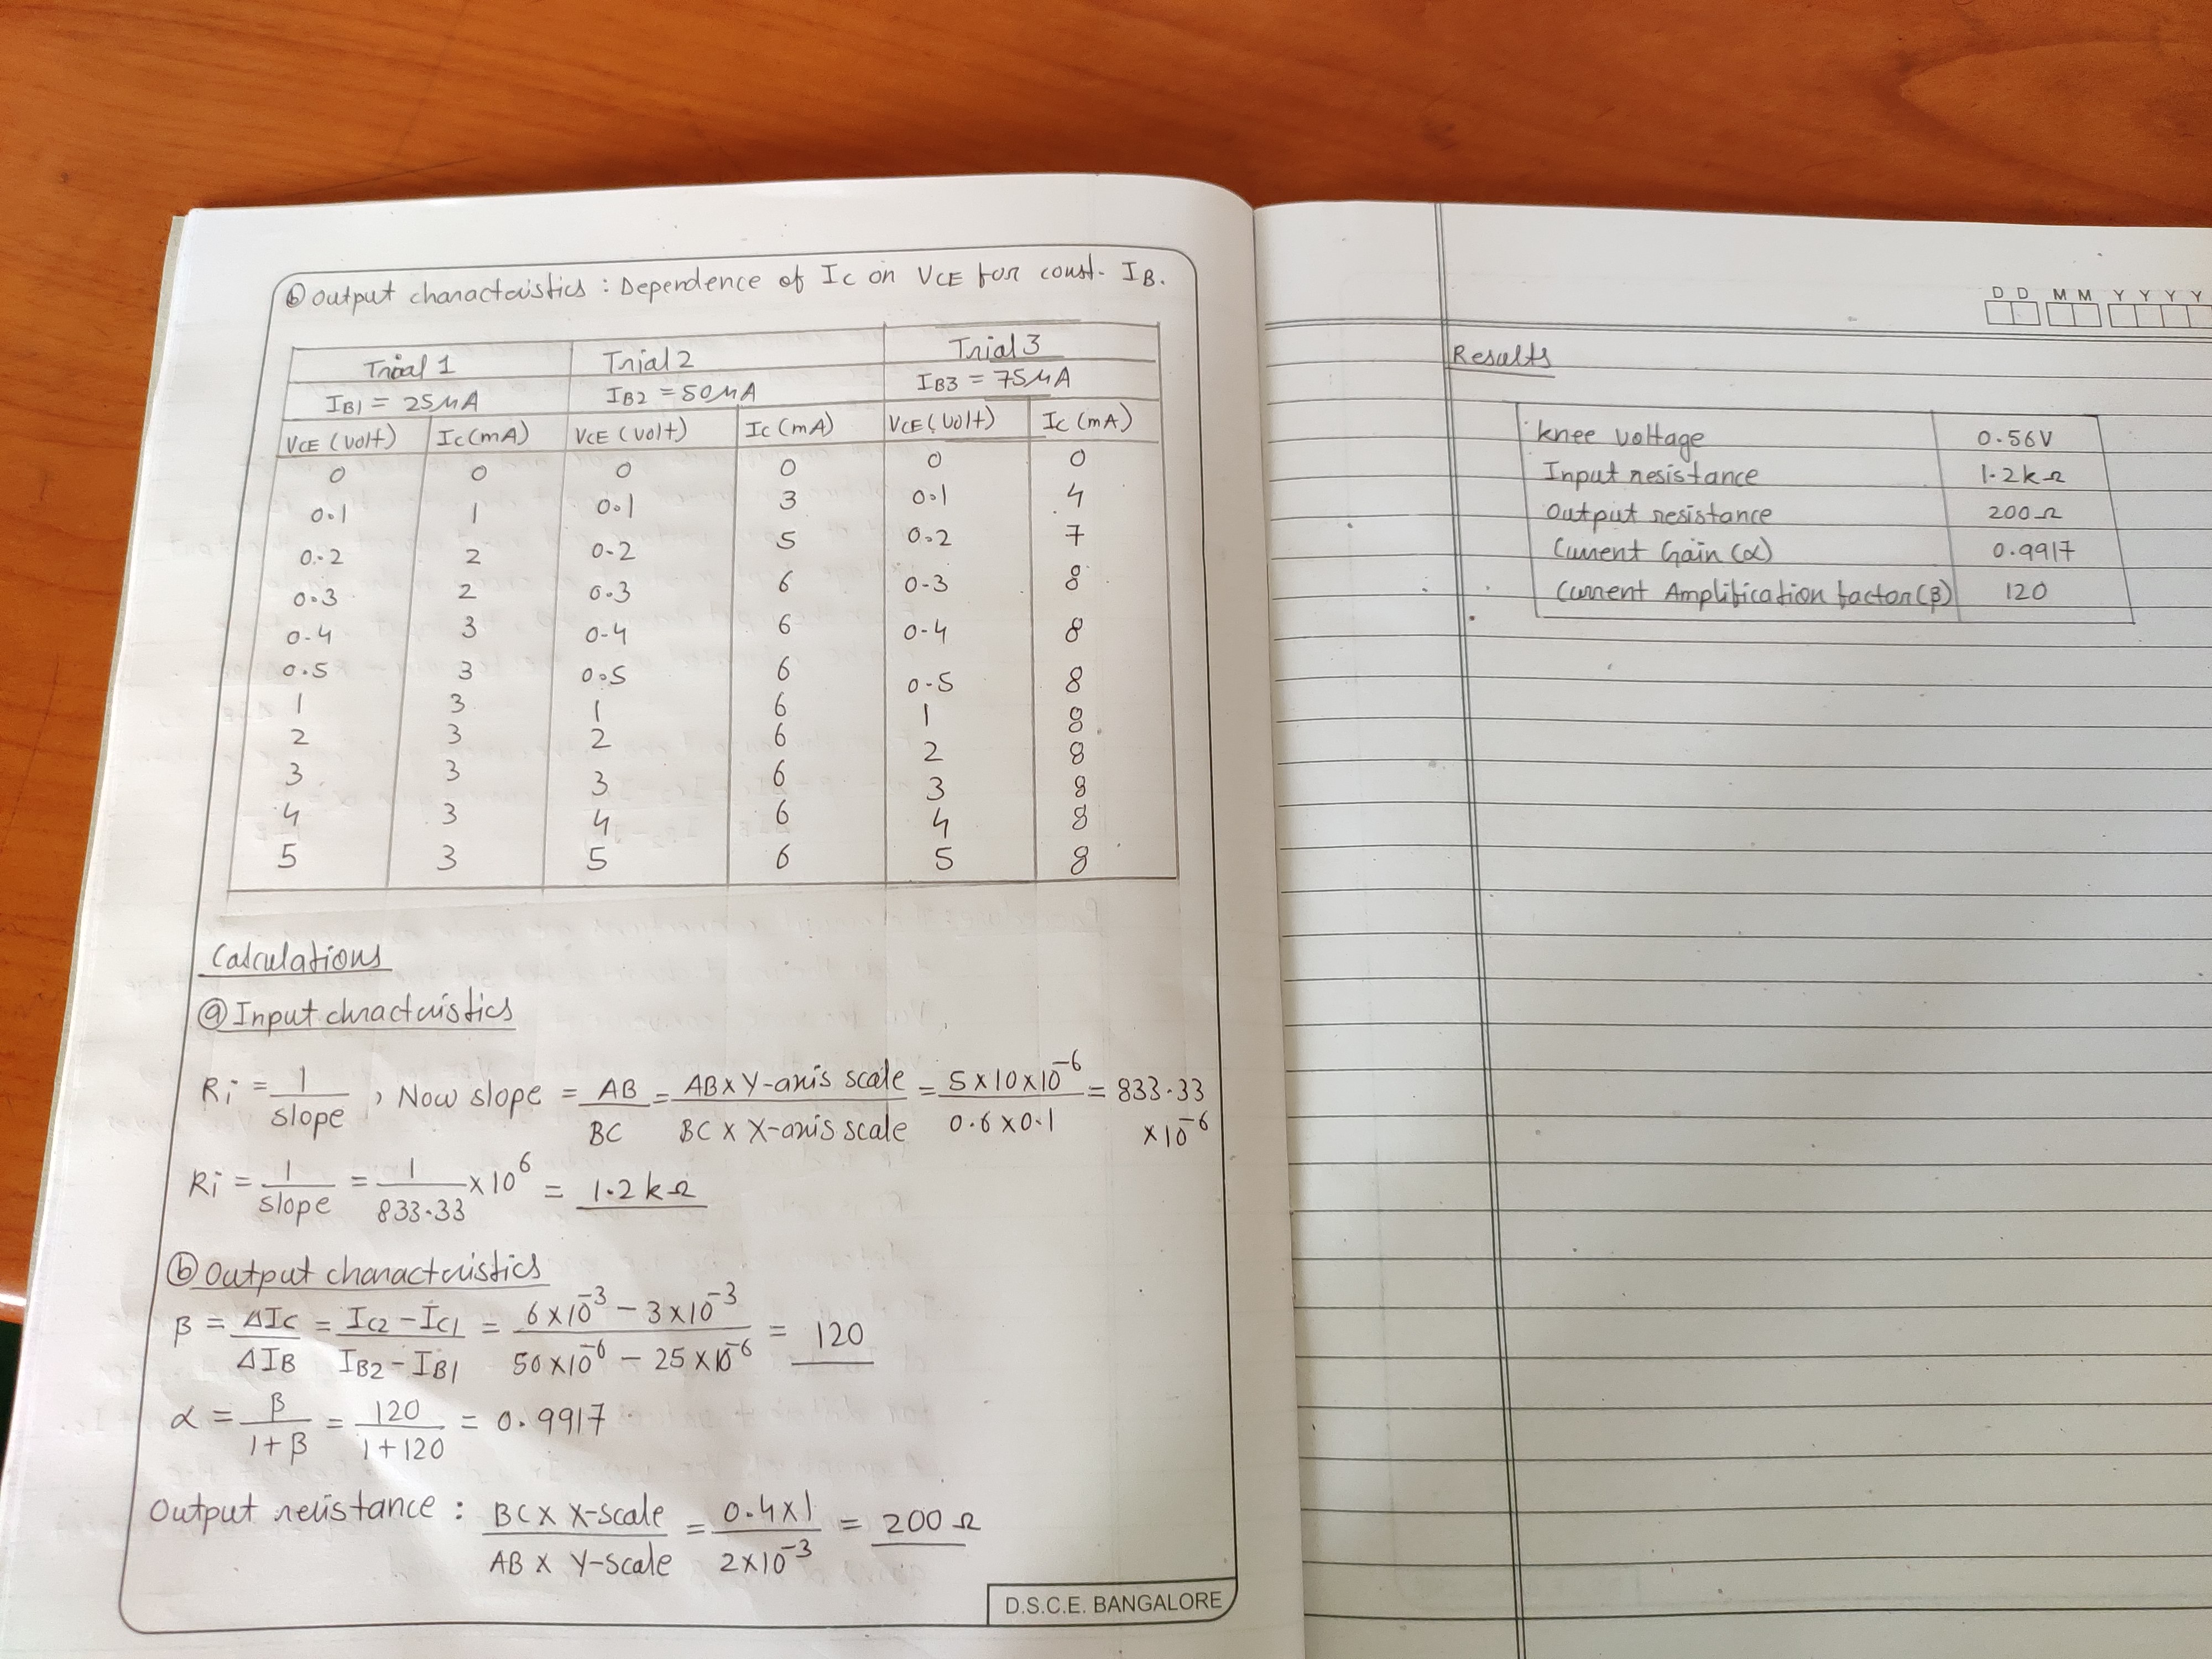 ⓑ Output charactcuistics : Dependence of Ic on VCE for const. IB.
Trial 1 Trial 2 Trial 3
IB1 = 25μA IB2 = 50μA IB3 = 75μA
VCE (volt) Ic (mA) VCE (volt) Ic (mA) VCE (volt) Ic (mA)
0 0 0 0 0 0
0.1 1 0.1 3 0.1 4
0.2 2 0.2 5 0.2 7
0.3 2 0.3 6 0.3 8
0.4 3 0.4 6 0.4 8
0.5 3 0.5 6 0.5 8
1 3 1 6 1 8
2 3 2 6 2 8
3 3 3 6 3 8
4 3 4 6 4 8
5 3 5 6 5 8
Calculations
ⓐ Input chractcuistics
Ri = 1/slope , Now slope = AB/BC = AB x Y-axis scale/BC x X-axis scale = 5x10x10⁻⁶/0.6x0.1 = 833.33 x10⁻⁶
Ri = 1/slope = 1/833.33 x10⁶ = 1.2 kΩ
ⓑ Output charactcuistics
β = ΔIC/ΔIB = IC2 - IC1/IB2 - IB1 = 6x10⁻³ - 3x10⁻³/50x10⁻⁶ - 25x10⁻⁶ = 120
α = β/1+β = 120/1+120 = 0.9917
Output resistance : BC x X-scale/AB x Y-scale = 0.4x1/2x10⁻³ = 200 Ω
D.S.C.E. BANGALORE
D D M M Y Y Y Y
Results
Knee voltage 0.56V
Input resistance 1.2kΩ
Output resistance 200Ω
Current Gain (α) 0.9917
Current Amplification factor (β) 120